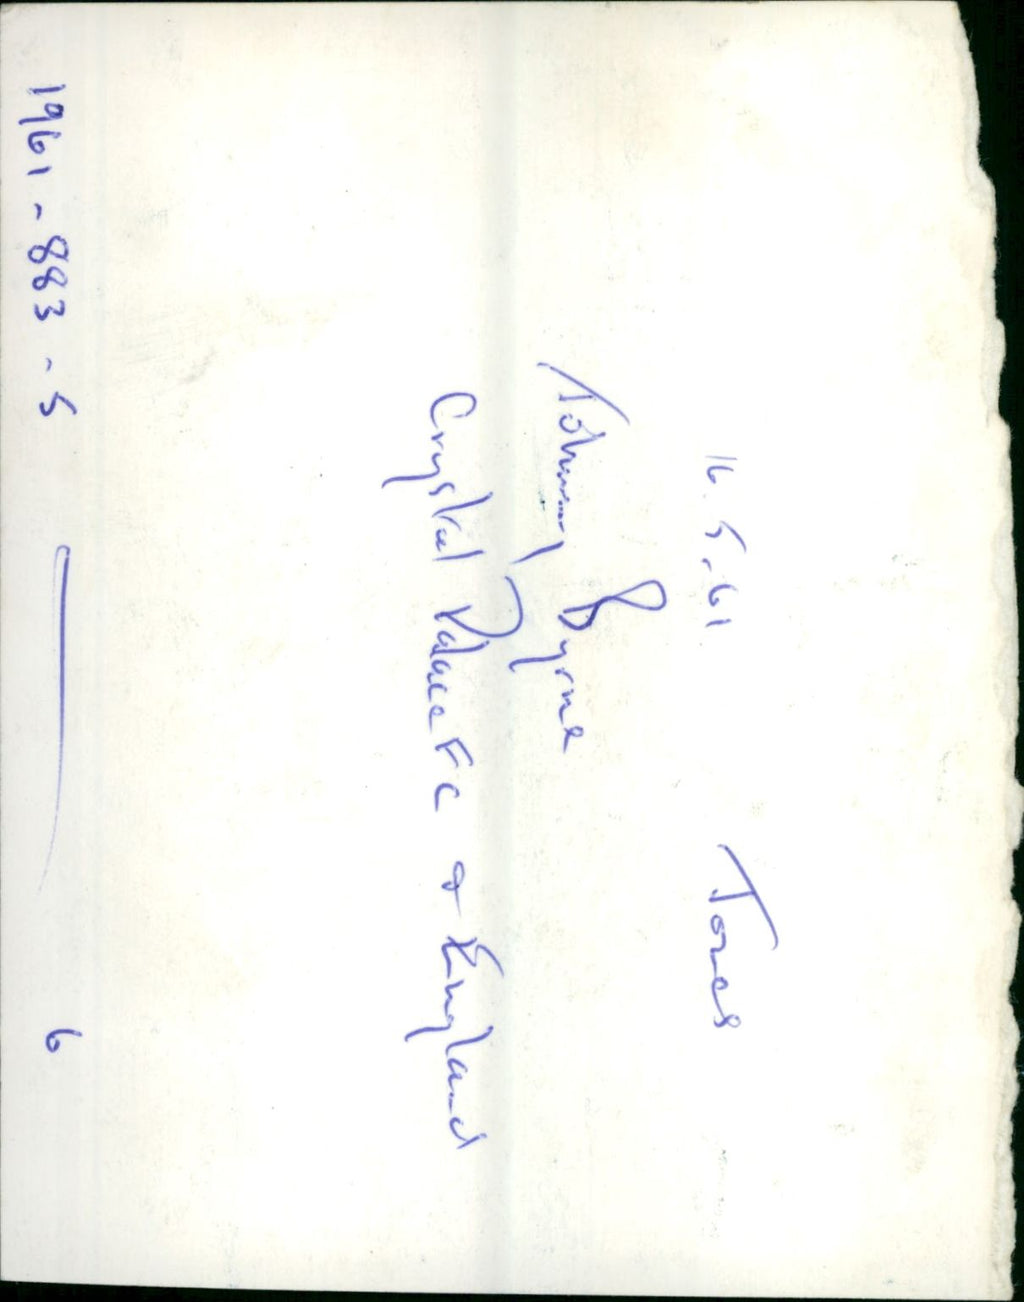 16.5.61 Jones
Johnny Byrne
Crystal Palace FC & England
1961-883-5 6